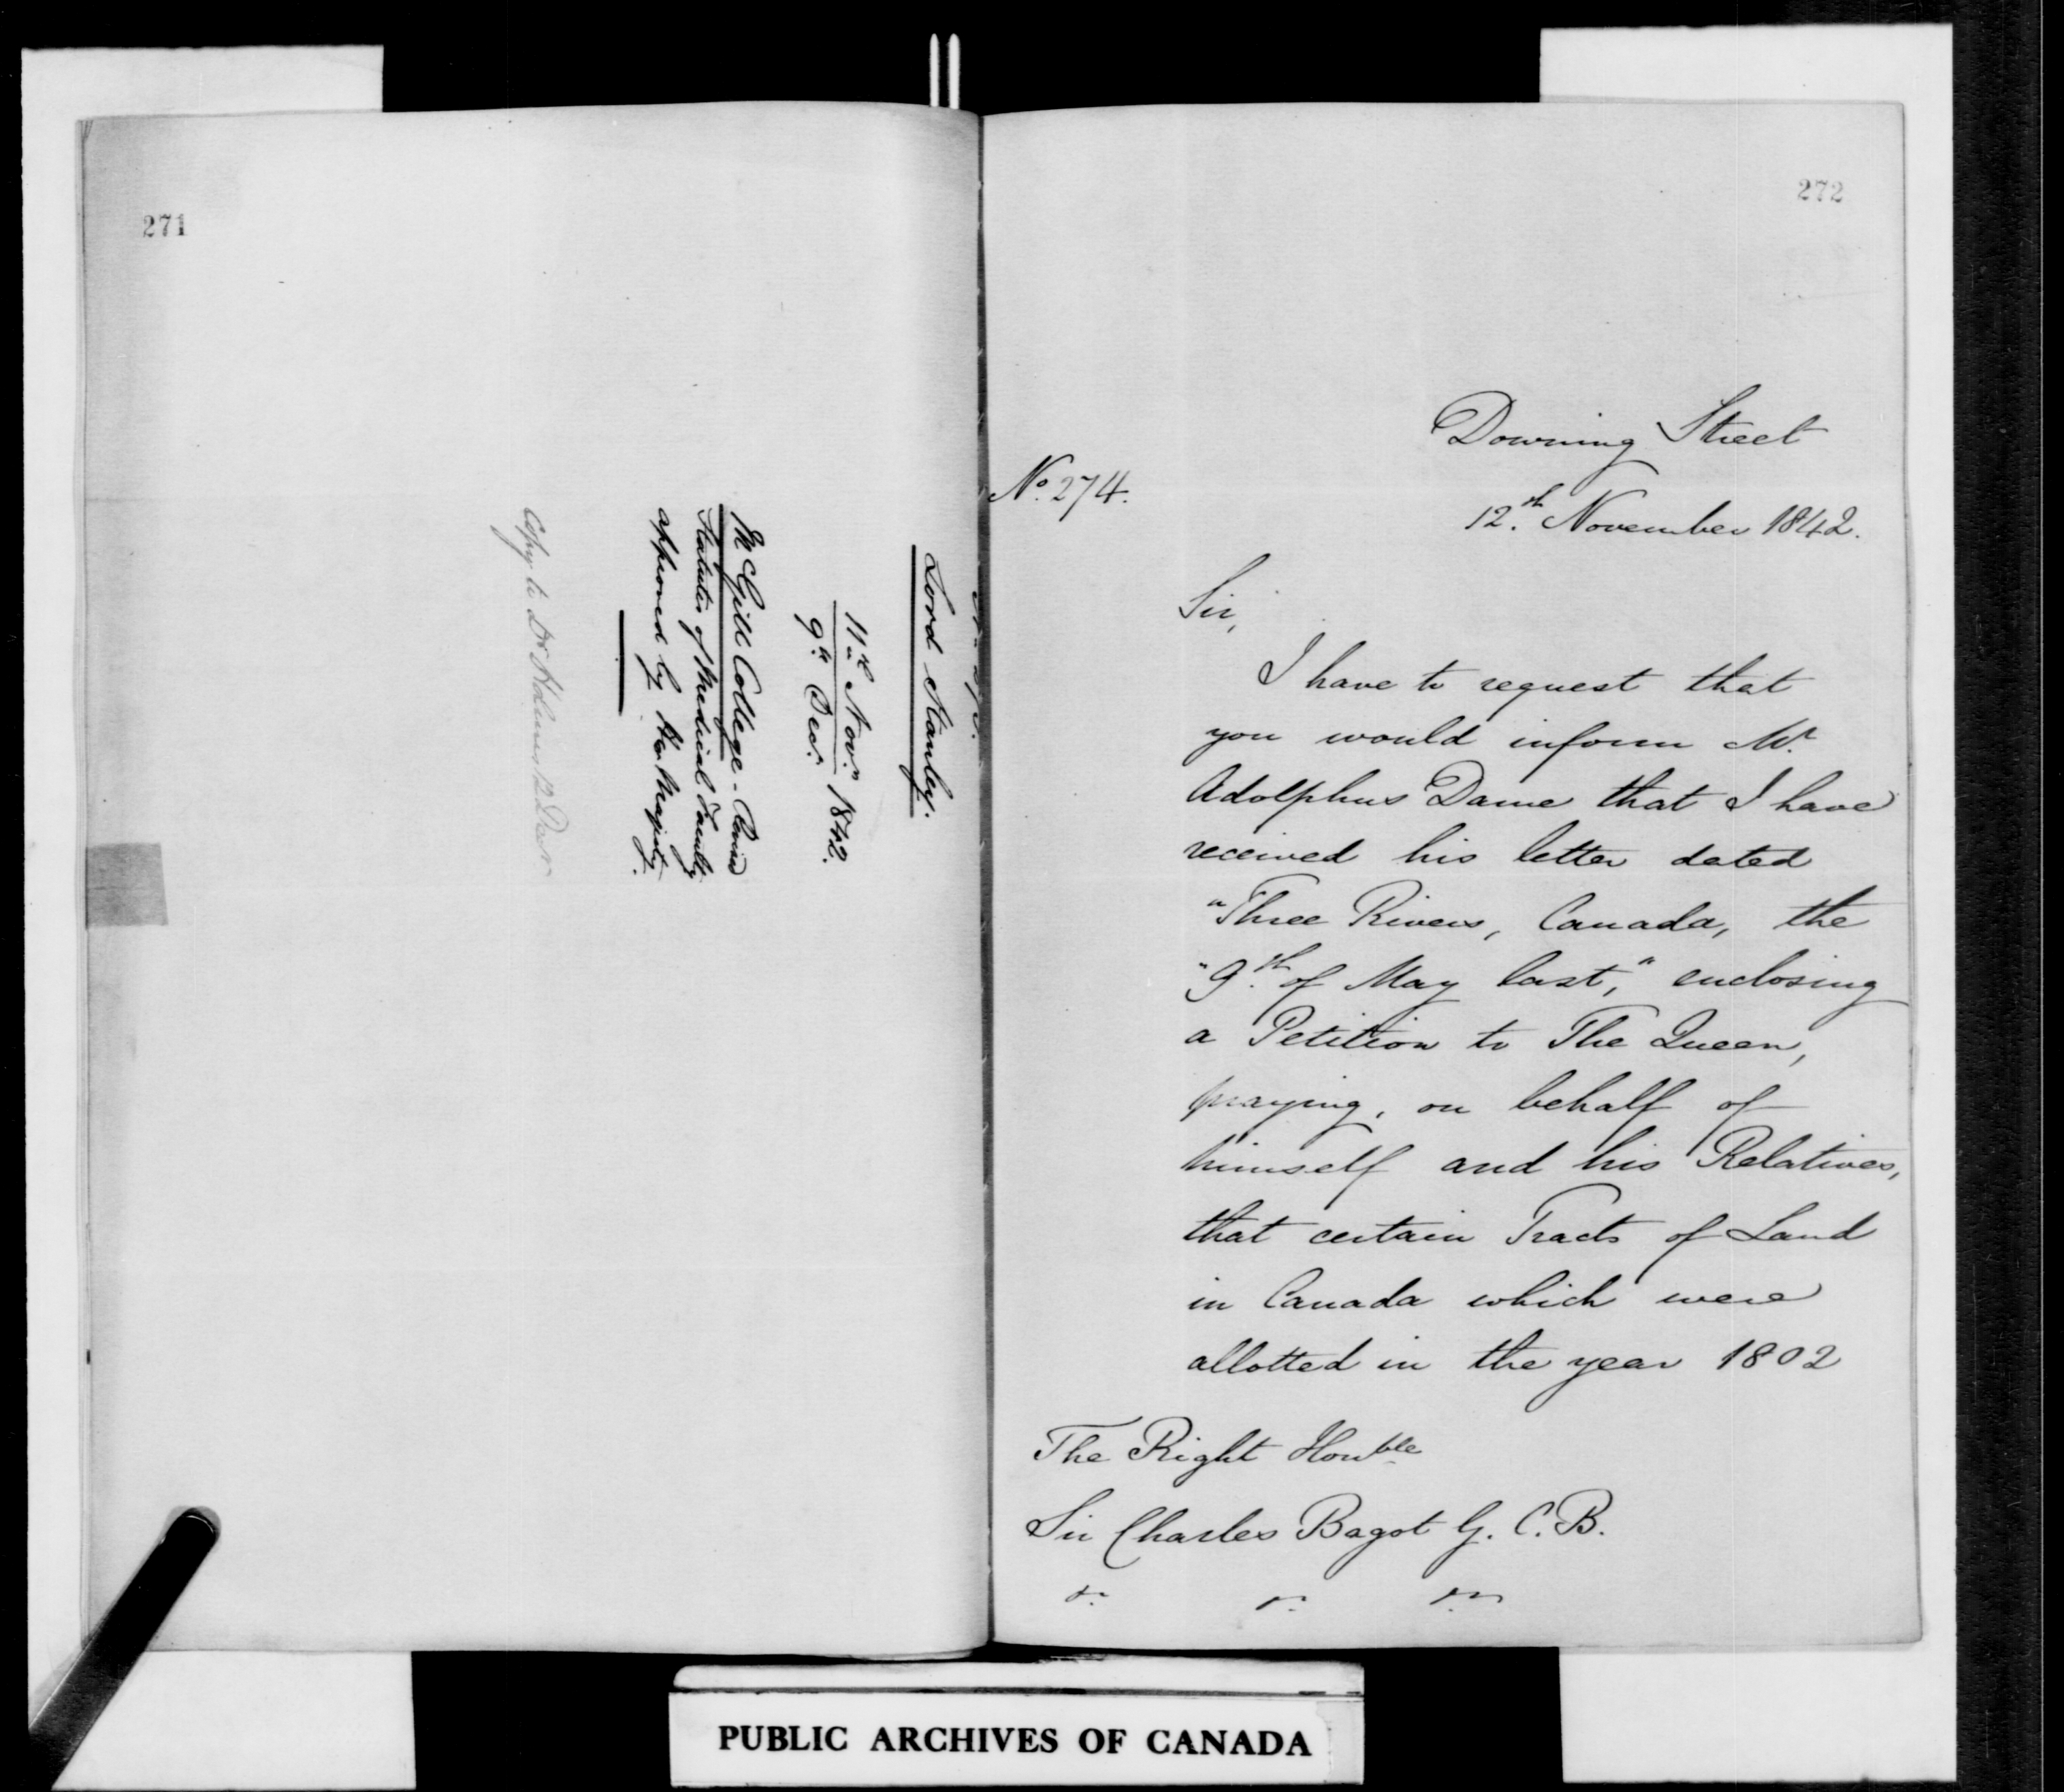 271
Lord Stanley.
11th Novr. 1842.
9th Decr.
McGill College -
Statutes of Medical Faculty
approved by Her Majesty.
Copy to Dr
272
Downing Street
No. 274.
12th November 1842.
Sir,
I have to request that
you would inform Mr
Adolphus Dame that I have
received his letter dated
"Three Rivers, Canada, the
"9th of May last," enclosing
a Petition to The Queen,
praying, on behalf of
himself and his Relatives,
that certain Tracts of Land
in Canada which were
allotted in the year 1802
The Right Honble
Sir Charles Bagot G. C. B.
PUBLIC ARCHIVES OF CANADA